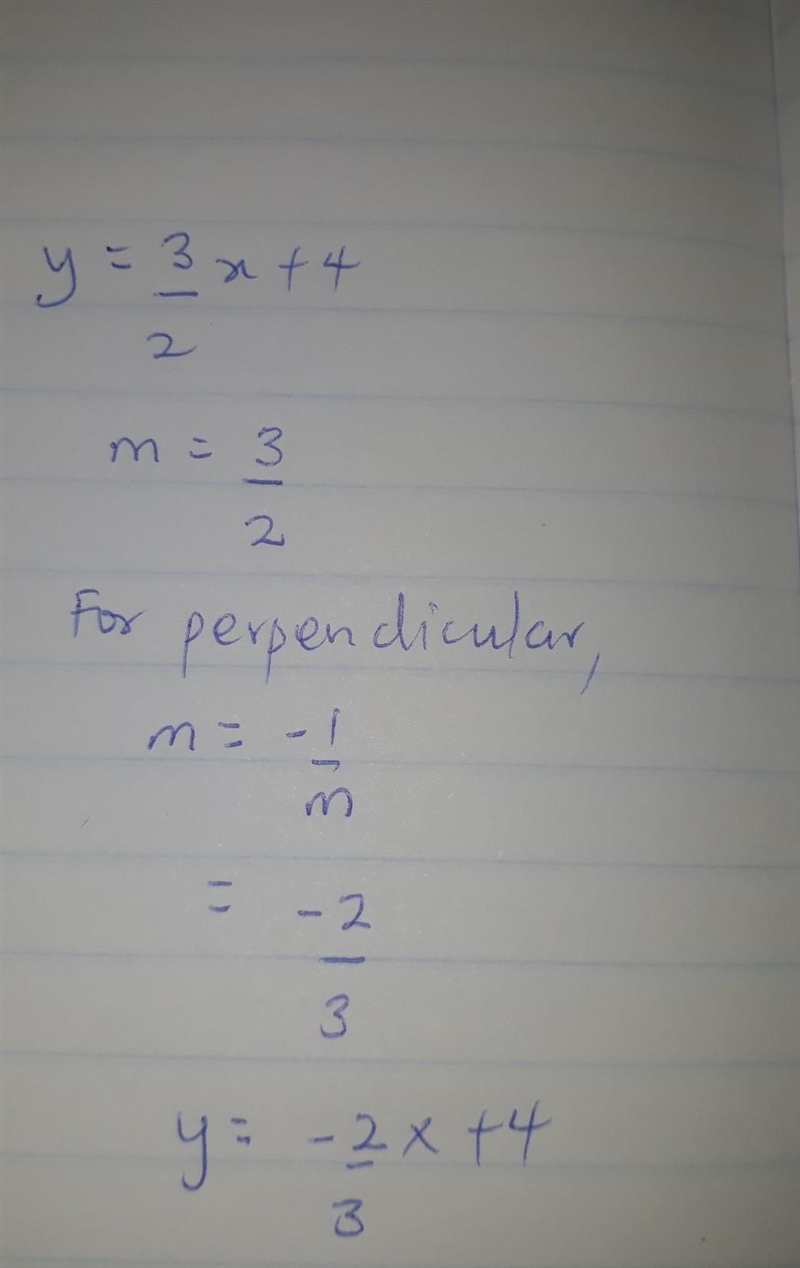 y = 3/2 x + 4
m = 3/2
For perpendicular,
m = -1/m
= -2/3
y = -2/3 x + 4